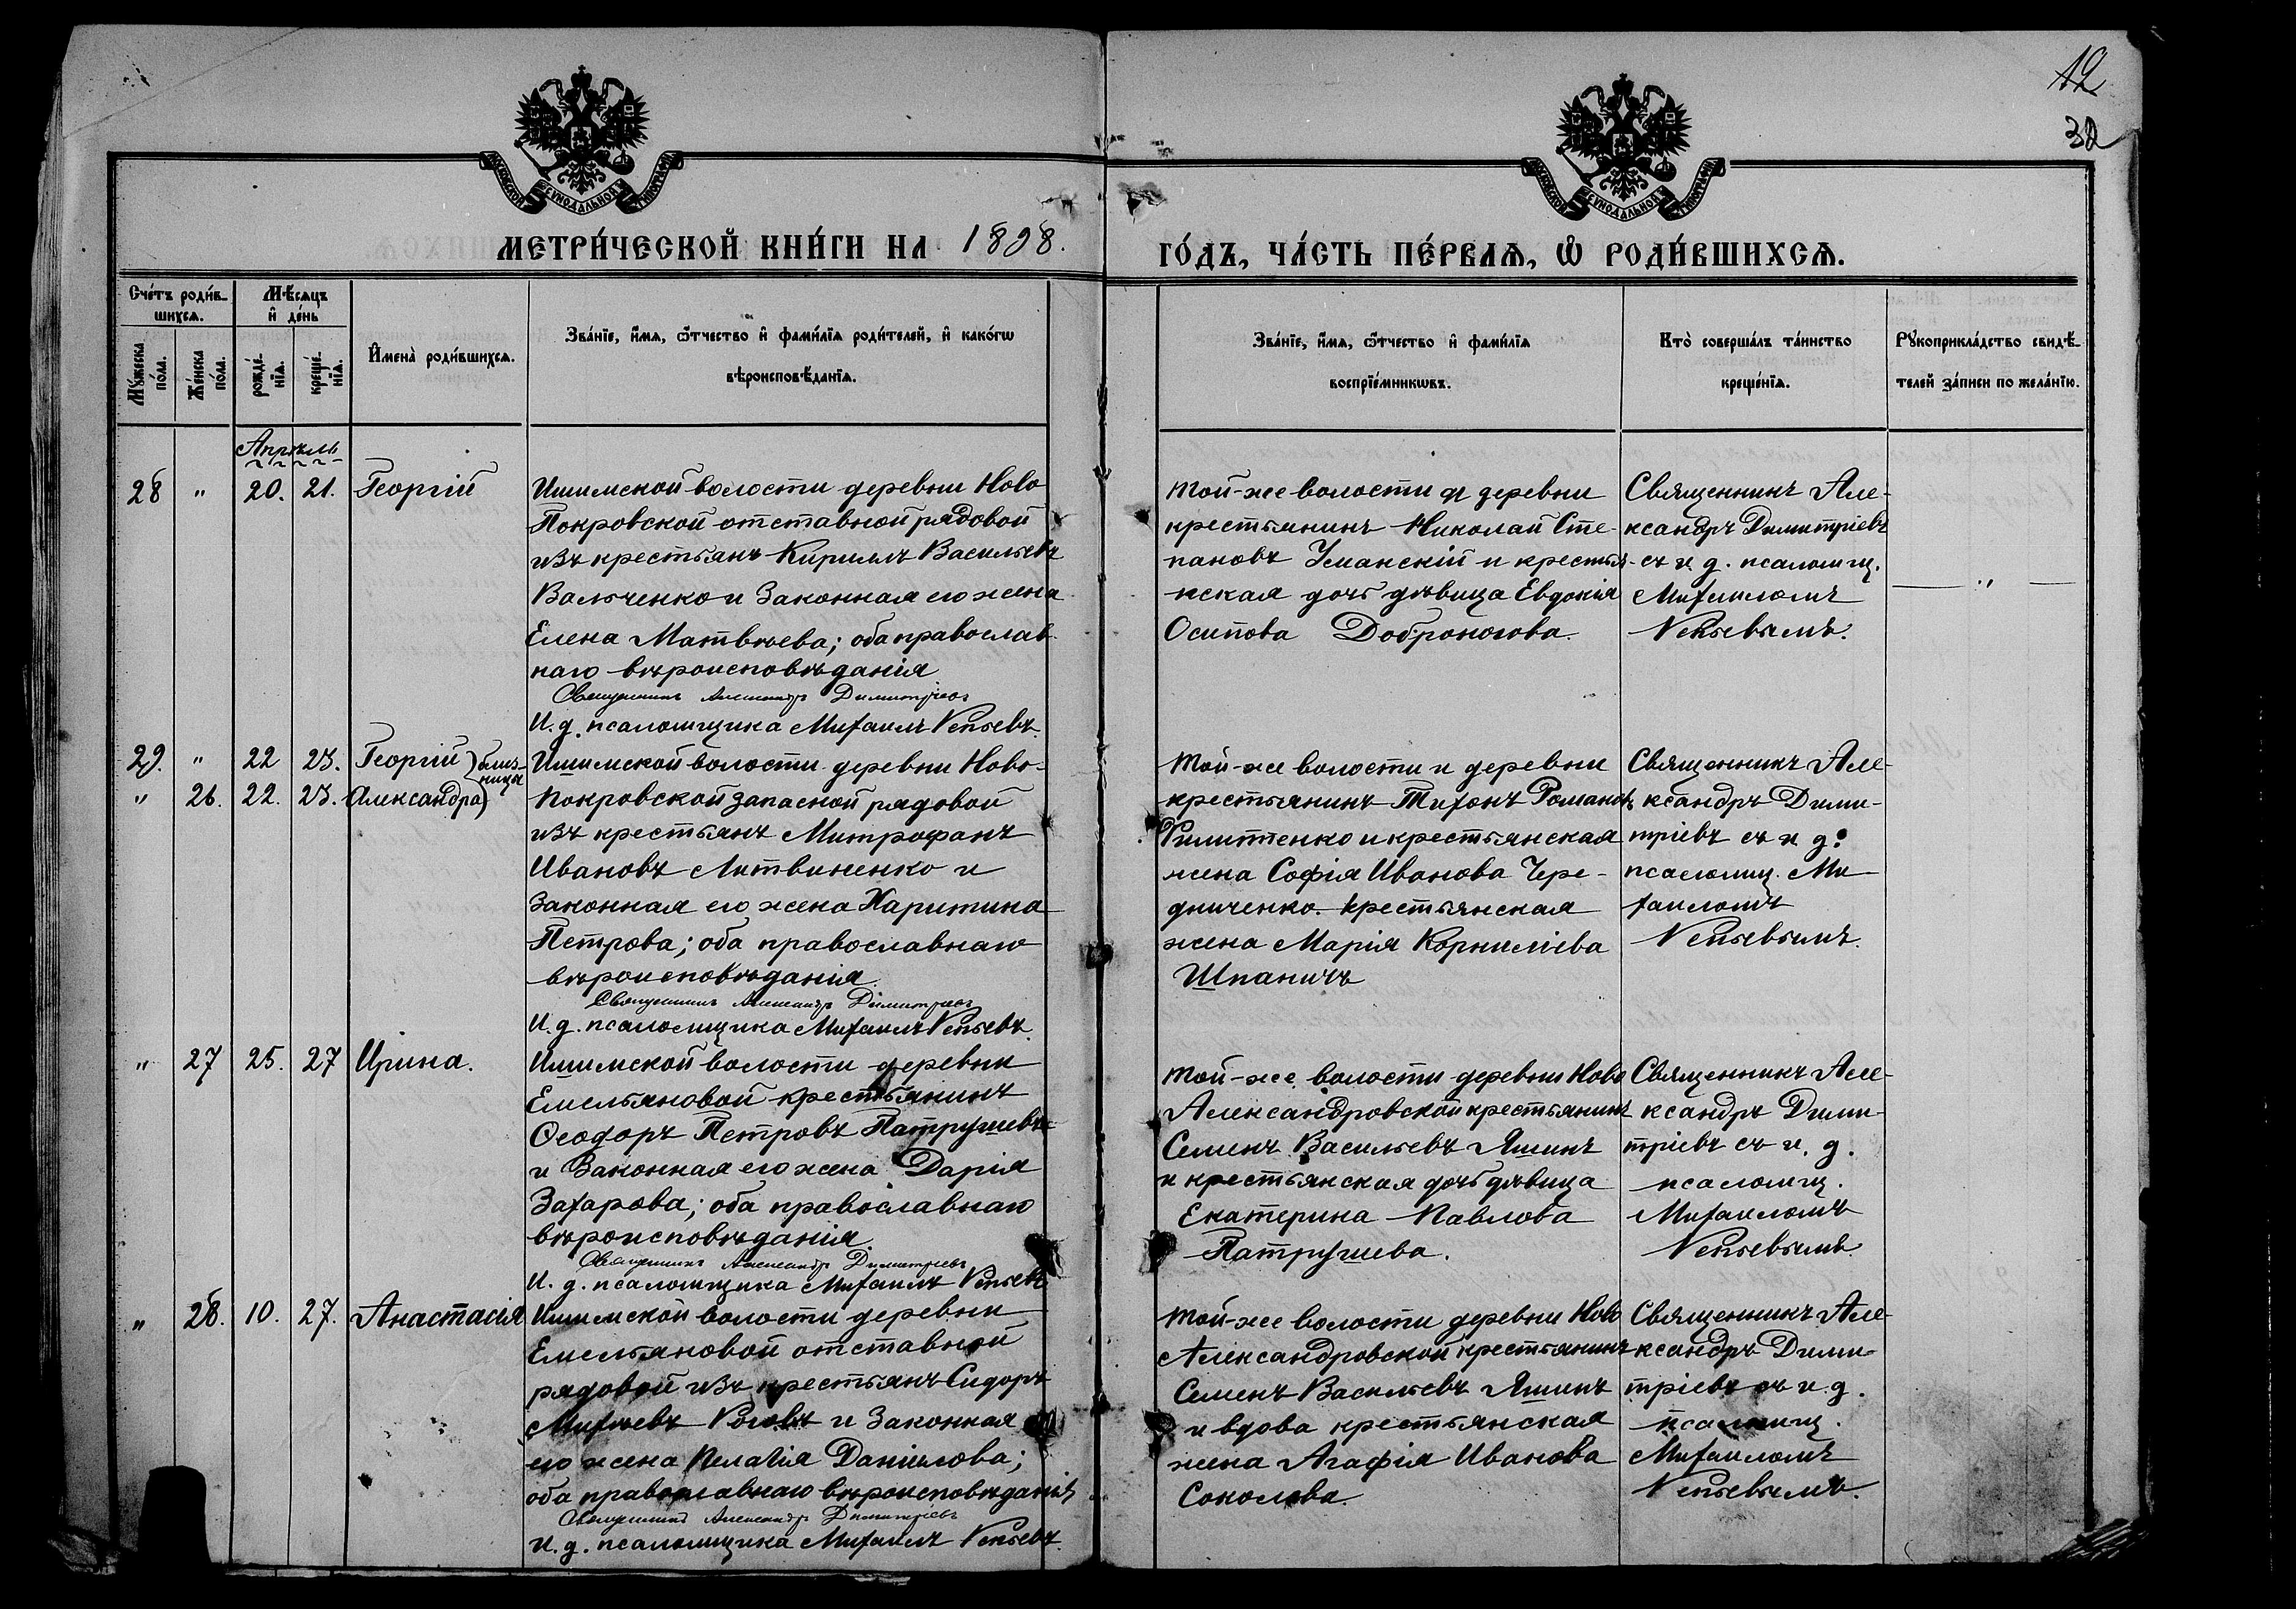 12
32
МОСКОВСКОЙ СѴНОДАЛЬНОЙ ТИПОГРАФІИ
МОСКОВСКОЙ СѴНОДАЛЬНОЙ ТИПОГРАФІИ
МЕТРИ́ЧЕСКОЙ КНИ́ГИ НА 1898.
ГО́ДЪ, ЧА́СТЬ ПЕ́РВАѦ, Ѡ҆ РОДИ́ВШИХСѦ.
Сче́тъ роди́в-
шихсѧ.
Мѣ́сѧцъ
и҆ де́нь
Мꙋ́жеска
по́ла.
Же́нска
по́ла.
рожде́-
нїѧ.
креще́-
нїѧ.
И҆мена̀ роди́вшихсѧ.
Зва́нїе, и҆́мѧ, ѻ҆́тчество и҆ фами́лїѧ роди́телей, и҆ како́гѡ
вѣроисповѣ́данїѧ.
Зва́нїе, и҆́мѧ, ѻ҆́тчество и҆ фами́лїѧ
воспрїе́мникѡвъ.
Кто̀ соверша́лъ та́инство
креще́нїѧ.
Рꙋкоприкла́дство свидѣ́-
телей за́писи по жела́нїю.
Апрѣль
28 " 20. 21. Георгій
Ишимской волости деревни Ново
Покровской отставной рядовой
изъ крестьянъ Кириллъ Васильевъ
Вальченко и законная его жена
Елена Матвѣева; оба православ-
наго вѣроисповѣданія
Священникъ Александръ Димитріевъ
И. д. псаломщика Михаилъ
той-же волости и деревни
крестьянинъ Николай Сте-
пановъ Уманскій и крестья-
нская дочь дѣвица Евдокія
Осипова Доброногова.
Священникъ Але-
ксандръ Димитріевъ
съ и д. псаломщ.
Михаиломъ
— " —
29. " 22 23. Георгій } близ-
ницы
" 26. 22. 23. Александра)
Ишимской волости деревни Ново-
Покровской запасной рядовой
изъ крестьянъ Митрофанъ
Ивановъ Литвиненко и
законная его жена Харитина
Петрова; оба православнаго
вѣроисповѣданія.
Священникъ Александръ Димитріевъ
И. д. псаломщика Михаилъ
той-же волости и деревни
крестьянинъ Тихонъ Романовъ
и крестьянская
жена Софія Иванова Чере-
дниченко. крестьянская
жена Марія Корниліева
Шпаничъ
Священникъ Але-
ксандръ Дими-
тріевъ съ и д.
псаломщ. Ми-
хаиломъ
" 27 25. 27 Ирина.
Ишимской волости деревни
Емельяновой крестьянинъ
Ѳеодоръ Петровъ Патрушевъ
и законная его жена Дарія
Захарова; оба православнаго
вѣроисповѣданія.
Священникъ Александръ Димитріевъ
И. д. псаломщика Михаилъ
той-же волости деревни Ново
Александровской крестьянинъ
Семенъ Васильевъ Яшинъ
и крестьянская дочь дѣвица
Екатерина Павлова
Патрушева.
Священникъ Але-
ксандръ Дими-
тріевъ съ и. д.
псаломщ.
Михаиломъ
" 28. 10. 27. Анастасія
Ишимской волости деревни
Емельяновой отставной
рядовой изъ крестьянъ Сидоръ
Михѣевъ Роговъ и законная
его жена Пелагія Даніилова;
оба православнаго вѣроисповѣданія
Священникъ Александръ Димитріевъ
И. д. псаломщика Михаилъ
той-же волости деревни Ново
Александровской крестьянинъ
Семенъ Васильевъ Яшинъ
и вдова крестьянская
жена Агафія Иванова
Соколова.
Священникъ Але-
ксандръ Дими-
тріевъ съ и д.
псаломщ.
Михаиломъ